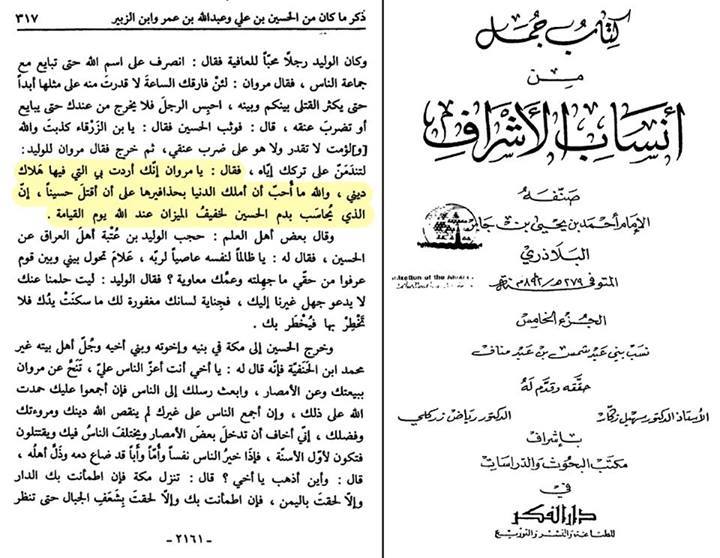 ذكر ما كان من الحسين بن علي وعبدالله بن عمر وابن الزبير ٣١٧
وكان الوليد رجلاً محبّاً للعافية فقال : انصرف على اسم الله حتى تبايع مع
جماعة الناس ، فقال مروان : لئنْ فارقك الساعةَ لا قدرتَ منه على مثلها أبداً
حتى يكثر القتلى بينكم وبينه ، احبِس الرجلَ فلا يخرج من عندك حتى يبايع
أو تضربَ عنقه ، قال : فوثب الحسين فقال : يا بن الزَرْقاء كذبتَ والله
[و]لؤمت لا تقدر ولا هو على ضرب عنقي، ثم خرج فقال مروان للوليد :
لتندَمَنّ على تركك إيّاه ، فقال : يا مروان إنّك أردت بي التي فيها هَلاك
ديني ، والله ما أُحبّ أن أملك الدنيا بحذافيرها على أن أقتلَ حسيناً ، إنّ
الذي يُحاسَب بدم الحسين لخفيفُ الميزان عند الله يوم القيامة .
وقال بعض أهل العلم : حجب الوليد بن عُتْبة أهلَ العراق عن
الحسين ، فقال له : يا ظالماً لنفسه عاصياً لربّه ، عَلامَ تحول بيني وبين قوم
عرفوا من حقّي ما جهلته وعمُّك معاوية ؟ فقال الوليد : ليت حلمنا عنك
لا يدعو جهل غيرنا إليك ، فجِناية لسانك مغفورة لك ما سكنَتْ يدُك فلا
تَخْطِرْ بها فيُخْطَر بك .
وخرج الحسين إلى مكة في بنيه وإخوته وبني أخيه وجُلّ أهل بيته غير
محمد ابن الحَنَفيّة فإنّه قال له : يا أخي أنت أعزّ الناس عليّ ، تَنَحَّ عن مروان
ببيعتك وعن الأمصار ، وابعث رسلك إلى الناس فإن أجمعوا عليك حمدت
الله على ذلك ، وإن أجمع الناس على غيرك لم ينقص الله دينك ومروءتك
وفضلك ، إني أخاف أن تدخلَ بعض الأمصار ويختلفَ الناسُ فيك ويقتتلون
فتكون لأوّل الأسنّة ، فإذا خيرُ الناس نفساً وأُمّاً وأَباً قد ضاع دمه وذَلَّ أهلُه ،
قال : وأين أذهب يا أخي ؟ قال : تنزل مكة فإن اطمأنت بك الدار
وإلّا لحقتَ باليمن ، فإن اطمأنت بك وإلّا لحقتَ بِشَعَفِ الجبال حتى تنظر
- ٢١٦١ -
كتاب جُمل
من
أنساب الأشراف
صنّفه
الإمام أحمد بن يحيى بن جابر
البلاذري
المتوفى ٢٧٩هـ/٨٩٢م
الجزء الخامس
نسب بني عبد شمس بن عبد مناف
حققه وقدم له
الأستاذ الدكتور سهيل زكار الدكتور رياض زركلي
بإشراف
مكتب البحوث والدراسات
في
دار الفكر
للطباعة والنشر والتوزيع